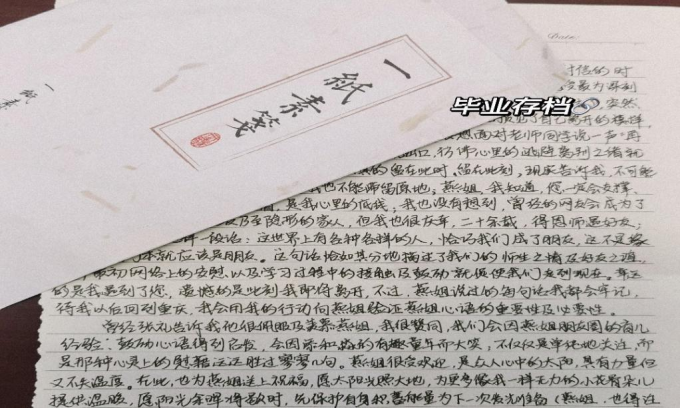 一
紙
素
笺
一
紙
素
毕业存档
Date:
对信的时
最为深刻
突然
自己离开的模样
想面对老师同学说一声“再
仿佛心里的逃避离别之绪就
的留在此时、留在此刻,现实告诉我,不可能
我也不能停留原地;燕姐,我知道,您一定会支撑、
是我心里的底线;我也没有想到,曾经的网友会成为了
及至隐形的家人,但我也很庆幸,二十余载,得遇师遇好友;
一段话:这世界上有各种各样的人,恰巧我们成了朋友,这不是缘
本就应该是朋友。这句话恰如其分地描述了我们的师生之情及好友之谊,
初网络上的安慰,以及学习过程中的接触及鼓动就促使我们走到现在。幸运
的是我遇到了您,遗憾的是此刻我即将离开,不过,燕姐说过的每句话我都会牢记,
待我以后回到重庆,我会用我的行动向燕姐验证燕姐心语的重要性及必要性。
曾经张礼告诉我他很佩服及羡慕燕姐,我很赞同,我们会因燕姐朋友圈的育儿
经验、鼓励心语得到启发,会因亲和益的有趣童年而大笑,不仅仅是单纯地关注,而
是那种心灵上的慰藉远远胜过寥寥几句。燕姐很受欢迎,是众人心中的太阳,具有力量但
又不失温度。在此,也为燕姐送上祝福,愿太阳光照大地,为更多像我一样无力的小花骨朵儿
提供温暖,愿阳光余晖将散时,先保护自身积蓄能量为下一次发光准备(燕姐,也得注